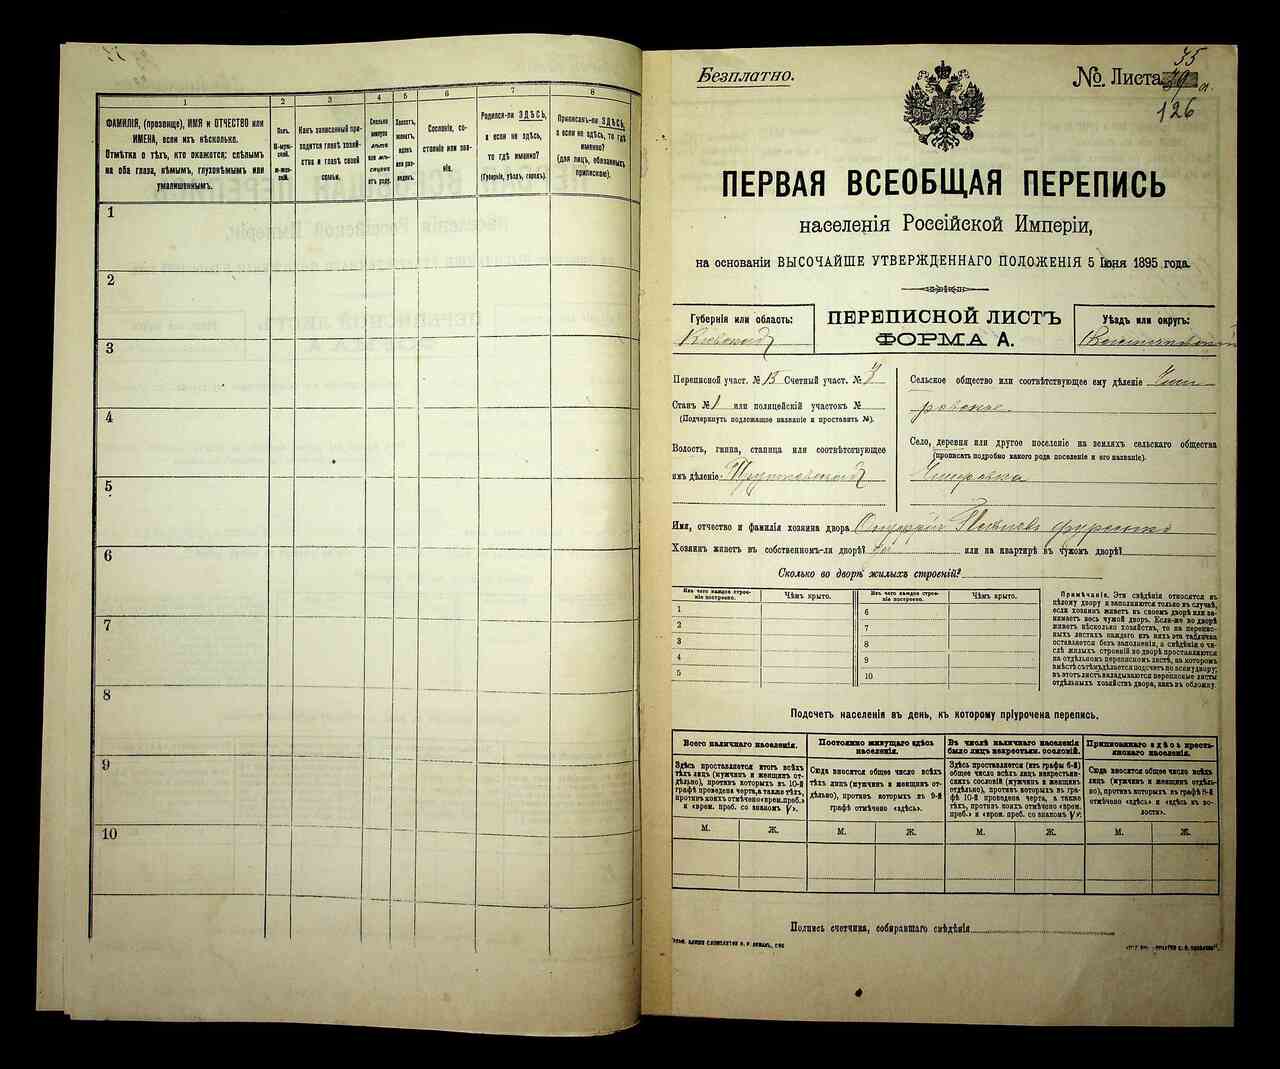 1
2
3
4
5
6
7
8
ФАМИЛІЯ, (прозвище), ИМЯ и ОТЧЕСТВО или
ИМЕНА, если ихъ нѣсколько.
Отмѣтка о тѣхъ, кто окажется: слѣпымъ
на оба глаза, нѣмымъ, глухонѣмымъ или
умалишеннымъ.
Полъ.
М-муж-
ской.
Ж-жен-
скій.
Какъ записанный при-
ходится главѣ хозяй-
ства и главѣ своей
семьи.
Сколько
минуло
лѣтъ
или мѣ-
сяцевъ
отъ роду.
Холостъ,
женатъ,
вдовъ
или раз-
веденъ.
Сословіе, со-
стояніе или зва-
ніе.
Родился-ли ЗДѢСЬ,
а если не здѣсь,
то гдѣ именно?
(Губернія, уѣздъ, городъ).
Приписанъ-ли ЗДѢСЬ,
а если не здѣсь, то гдѣ
именно?
(для лицъ, обязанныхъ
припискою).
1
2
3
4
5
6
7
8
9
10
Безплатно.
№. Листа
35
39
126
ПЕРВАЯ ВСЕОБЩАЯ ПЕРЕПИСЬ
населенія Россійской Имперіи,
на основаніи ВЫСОЧАЙШЕ УТВЕРЖДЕННАГО ПОЛОЖЕНІЯ 5 Іюня 1895 года.
Губернія или область:
Кіевская
ПЕРЕПИСНОЙ ЛИСТЪ
ФОРМА А.
Уѣздъ или округъ:
Переписной участ. № 13 Счетный участ. № 3
Станъ № 1 или полицейскій участокъ №
(Подчеркнуть подлежащее названіе и проставить №).
Волость, гмина, станица или соотвѣтствующее
имъ дѣленіе
Сельское общество или соотвѣтствующее ему дѣленіе
Село, деревня или другое поселеніе на земляхъ сельскаго общества
(прописать подробно какого рода поселеніе и его названіе).
Имя, отчество и фамилія хозяина двора
Хозяинъ живетъ въ собственномъ-ли дворѣ? да или на квартирѣ въ чужомъ дворѣ?
Сколько во дворѣ жилыхъ строеній?
Изъ чего каждое строе-
ніе построено.
Чѣмъ крыто.
Изъ чего каждое строе-
ніе построено.
Чѣмъ крыто.
1
2
3
4
5
6
7
8
9
10
Примѣчаніе. Эти свѣдѣнія относятся къ
цѣлому двору и заполняются только въ случаѣ,
если хозяинъ живетъ въ своемъ дворѣ или за-
нимаетъ весь чужой дворъ. Если-же во дворѣ
живетъ нѣсколько хозяйствъ, то на перепис-
ныхъ листахъ каждаго изъ нихъ эта табличка
оставляется безъ заполненія, а свѣдѣнія о чи-
слѣ жилыхъ строеній во дворѣ проставляются
на отдѣльномъ переписномъ листѣ, на которомъ
вмѣстѣ съ тѣмъ дѣлается подсчетъ по всему двору;
въ этотъ листъ вкладываются переписные листы
отдѣльныхъ хозяйствъ двора, какъ въ обложку.
Подсчетъ населенія въ день, къ которому пріурочена перепись.
Всего наличнаго населенія.
Здѣсь проставляется итогъ всѣхъ
тѣхъ лицъ (мужчинъ и женщинъ от-
дѣльно), противъ которыхъ въ 10-й
графѣ проведена черта, а также тѣхъ,
противъ коихъ отмѣчено «врем. преб.»
и «врем. преб. со знакомъ V».
Постоянно живущаго здѣсь
населенія.
Сюда вносится общее число всѣхъ
тѣхъ лицъ (мужчинъ и женщинъ от-
дѣльно), противъ которыхъ въ 9-й
графѣ отмѣчено «здѣсь».
Въ числѣ наличнаго населенія
было лицъ некрестьян. сословій.
Здѣсь проставляется (изъ графы 6-й)
общее число всѣхъ лицъ некрестьян-
скихъ сословій (мужчинъ и женщинъ
отдѣльно), противъ которыхъ въ гра-
фѣ 10-й проведена черта, а также
тѣхъ, противъ коихъ отмѣчено «врем.
преб.» и «врем. преб. со знакомъ V».
Приписаннаго здѣсь кресть-
янскаго населенія.
Сюда вносится общее число всѣхъ
лицъ (мужчинъ и женщинъ отдѣль-
но), противъ которыхъ въ графѣ 8-й
отмѣчено «здѣсь» и «здѣсь въ во-
лости».
М. Ж. М. Ж. М. Ж. М. Ж.
Подпись счетчика, собиравшаго свѣдѣнія